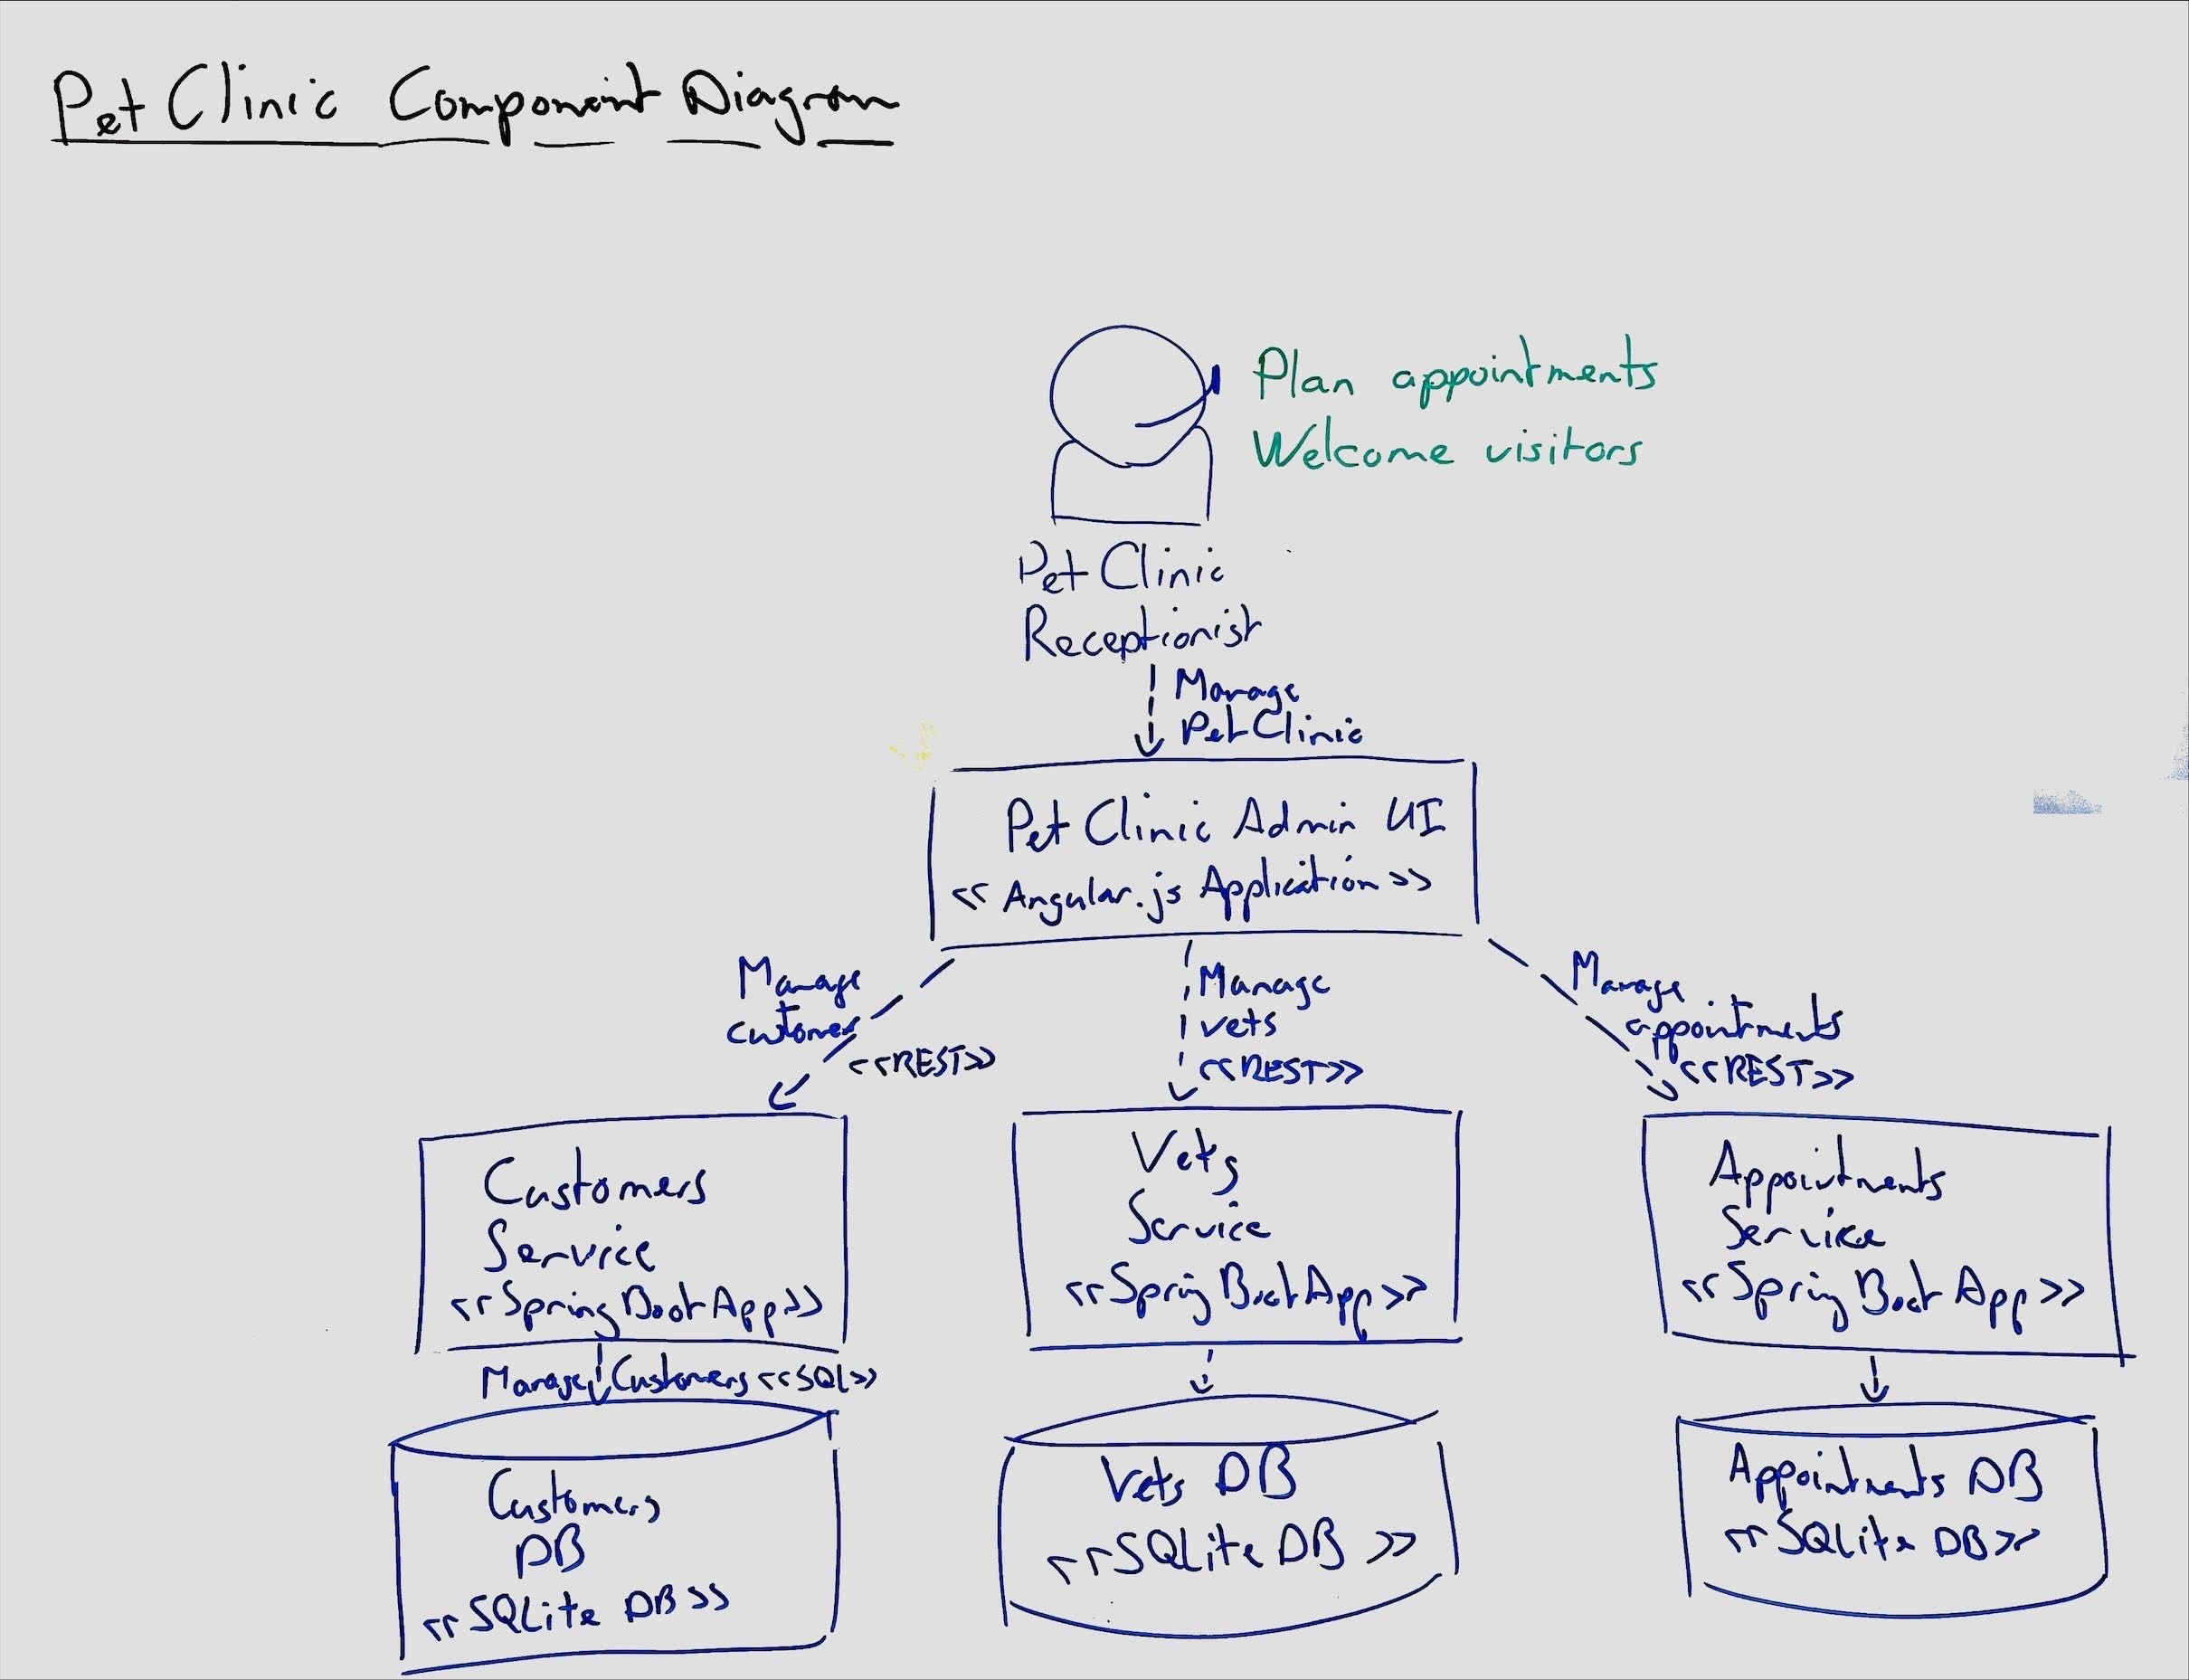 Pet Clinic Component Diagram
Plan appointments
Welcome visitors
Pet Clinic
Receptionist
Manage
Pet Clinic
Pet Clinic Admin UI
<< Angular.js Application >>
Manage
customer
<<REST>>
Manage
vets
<<REST>>
Manage
appointments
<<REST>>
Customers
Service
<<Spring Boot App>>
Vets
Service
<<Spring Boot App>>
Appointments
Service
<<Spring Boot App>>
Manage Customers <<SQL>>
Customers
DB
<<SQLite DB>>
Vets DB
<<SQLite DB >>
Appointments DB
<<SQLite DB>>